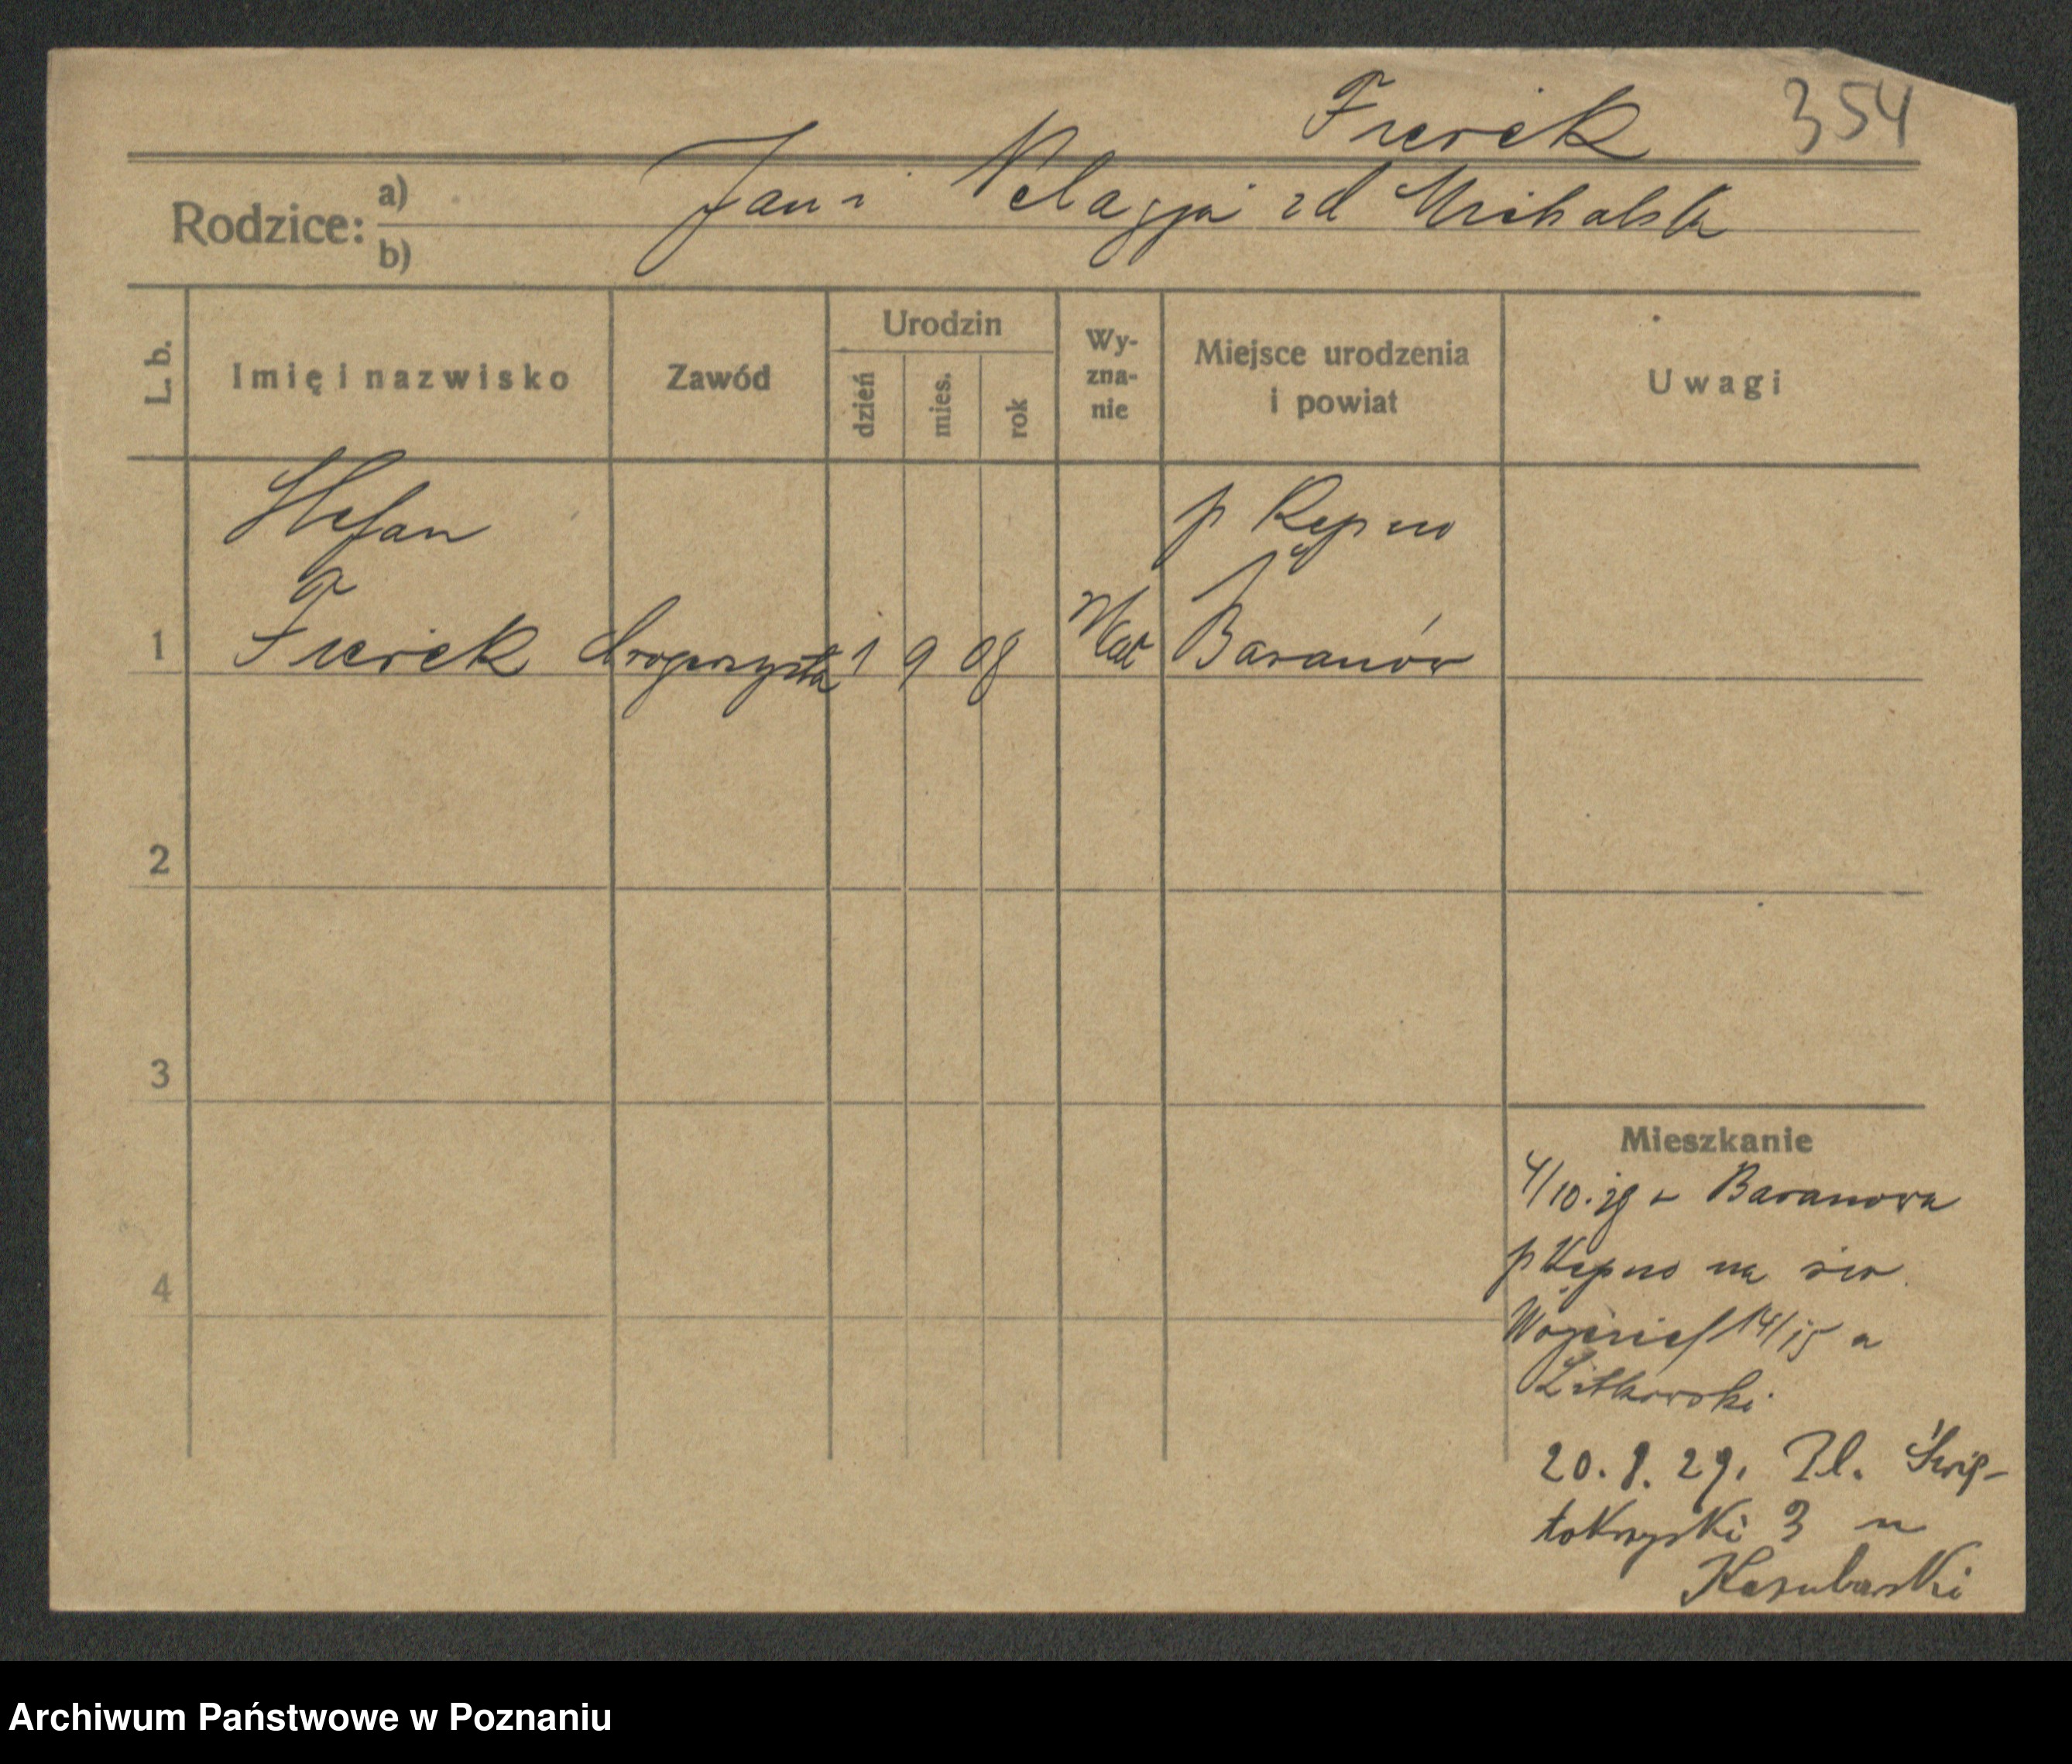 Frerek 354
Rodzice: a) Jan i Pelagja zd Michalska
b)
L. b. Imię i nazwisko Zawód Urodzin dzień mies. rok Wyznanie Miejsce urodzenia i powiat Uwagi
Stefan p Kępno
1 Frerek drogerzysta 1 9 08 Kat Baranów
2
3
Mieszkanie
4/10. 28 z Baranowa
p Kępno na św.
4
Wojciech 14/15 u
Litkowski
20. 8. 29. Pl. Świę-
tokrzyski 3 u
Kasubarski
Archiwum Państwowe w Poznaniu